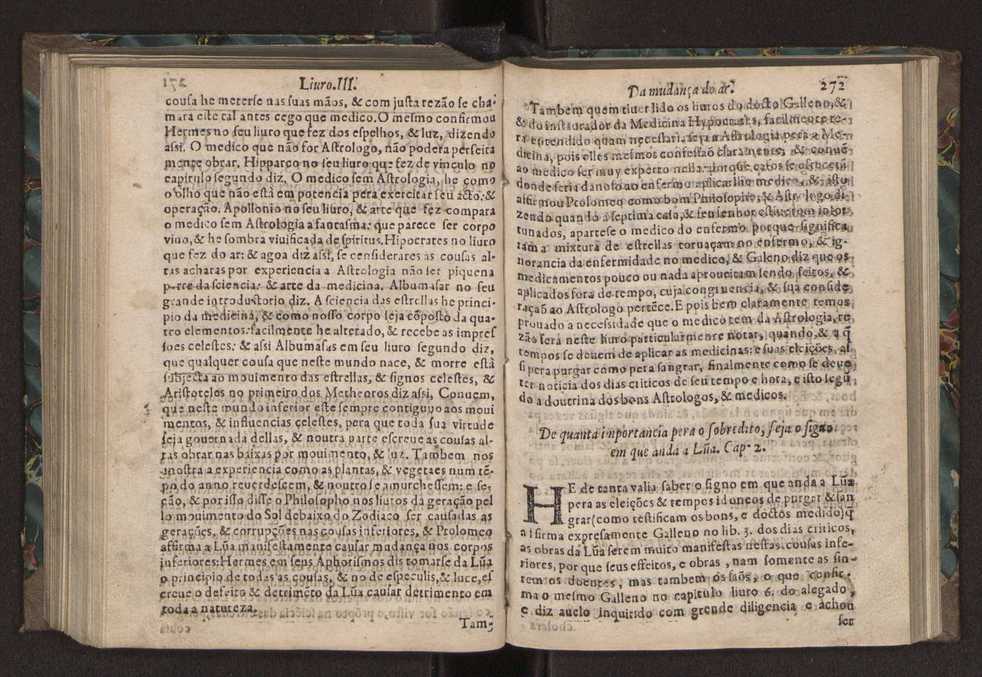 Liuro.III.
cousa he meterse nas suas mãos, & com justa rezão se cha-
mara este tal antes cego que medico. O mesmo confirmou
Hermes no seu liuro que fez dos espelhos, & luz, dizendo
assi. O medico que não for Astrologo, não podera perfeita
mente obrar. Hipparco no seu liuro que fez de vinculo no
capitulo segundo diz. O medico sem Astrologia, he como
o olho que não està em potencia pera exercitar seu acto, &
operação. Apollonio no seu liuro, & arte que fez compara
o medico sem Astrologia a fantasma: que parece ser corpo
viuo, & he sombra viuificada de spiritus. Hipocrates no liuro
que fez do ar: & agoa diz assi, se considerares as cousas al-
tas acharas por experiencia a Astrologia não ser piquena
parte da sciencia: & arte da medicina. Albumasar no seu
grande introductorio diz. A sciencia das estrellas he princi-
pio da medicina, & como nosso corpo seja cõposto da qua-
tro elementos: facilmente he alterado, & recebe as impres
soes celestes: & assi Albumasas em seu liuro segundo diz,
que qualquer cousa que neste mundo nace, & morre està
subjecta ao mouimento das estrellas, & signos celestes, &
Aristoteles no primeiro dos Metheoros diz assi, Conuem,
que neste mundo inferior este sempre contiguo aos moui
mentos, & influencias celestes, pera que toda sua virtude
seja gouernada dellas, & noutra parte escreue as cousas al-
tas obrar nas baixas por mouimento, & luz. Tambem nos
mostra a experiencia como as plantas, & vegetaes num tẽ-
po do anno reuerdescem, & noutro se amurchessem: e se-
cão, & por isso disse o Philosopho nos liuros da geração pel
lo mouimento do Sol debaixo do Zodiaco ser causadas as
gerações, & corrupções nas cousas inferiores, & Ptolomeo
affirma a Lũa manifestamente causar mudança nos corpos
inferiores: Hermes em seus Aphorismos dis tomarse da Lũa
o principio de todas as cousas, & no de especulis, & luce, es
creue o defeito & detrimẽto da Lũa causar detrimento em
toda a natureza.
Tam-
Da mudança do ar. 272
Tambem quem tiuer lido os liuros do docto Galleno, &
& do instaurador da Medicina Hypocrates, facilmente te-
ra entendido quam necessaria seja a Astrologia pera a Me-
dicina, pois elles mesmos confessão claramente, & conuẽ
ao medico ser muy experto nella: porque casos se offrecem
donde seria danoso ao enfermo aplicarlhe medico, & assi
affirmou Ptolomeo como bom Philosopho, & Astrologo di
zendo quando a septima casa, & seu senhor estiuerem infor
tunados, apartese o medico do enfermo porque significa
ram a mixtura de estrellas toruaçam no enfermo, & ig-
norancia da enfermidade no medico, & Galeno diz que os
medicamentos pouco ou nada aproueitam sendo feitos, &
aplicados fora de tempo, cuja congruencia, & sua conside
raçaõ ao Astrologo pertẽce. E pois bem claramente temos
prouado a necessidade que o medico tem da Astrologia, re
zão serà neste liuro particularmente notar, quando, & a q̃
tempos se deuem de aplicar as medicinas: e suas eleições, as
si pera purgar como pera sangrar, finalmente como se deue
ter noticia dos dias criticos de seu tempo e hora, e isto segũ
do a doutrina dos bons Astrologos, & medicos.
De quanta importancia pera o sobredito, seja o signo
em que anda a Lũa. Cap. 2.
HE de tanta valia saber o signo em que anda a Lũa
pera as eleições & tempos idoneos de purgar & san
grar (como testificam os bons, e doctos medido) q̃
afirma expresamente Galleno no lib. 3. dos dias criticos,
as obras da Lũa serem muito manifestas nestas cousas infe-
riores, por que seus effeitos, e obras, nam somente as sin-
tem os doentes, mas tambem os saõs, o que confir-
ma o mesmo Galleno no capitulo liuro 6. do alegado,
e diz auelo inquirido com grende diligencia e achou
ser